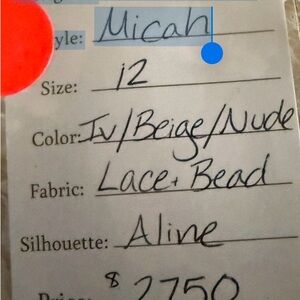 yle: Micah
Size: 12
Color: Iv/Beige/Nude
Fabric: Lace + Bead
Silhouette: Aline
Price: $2750